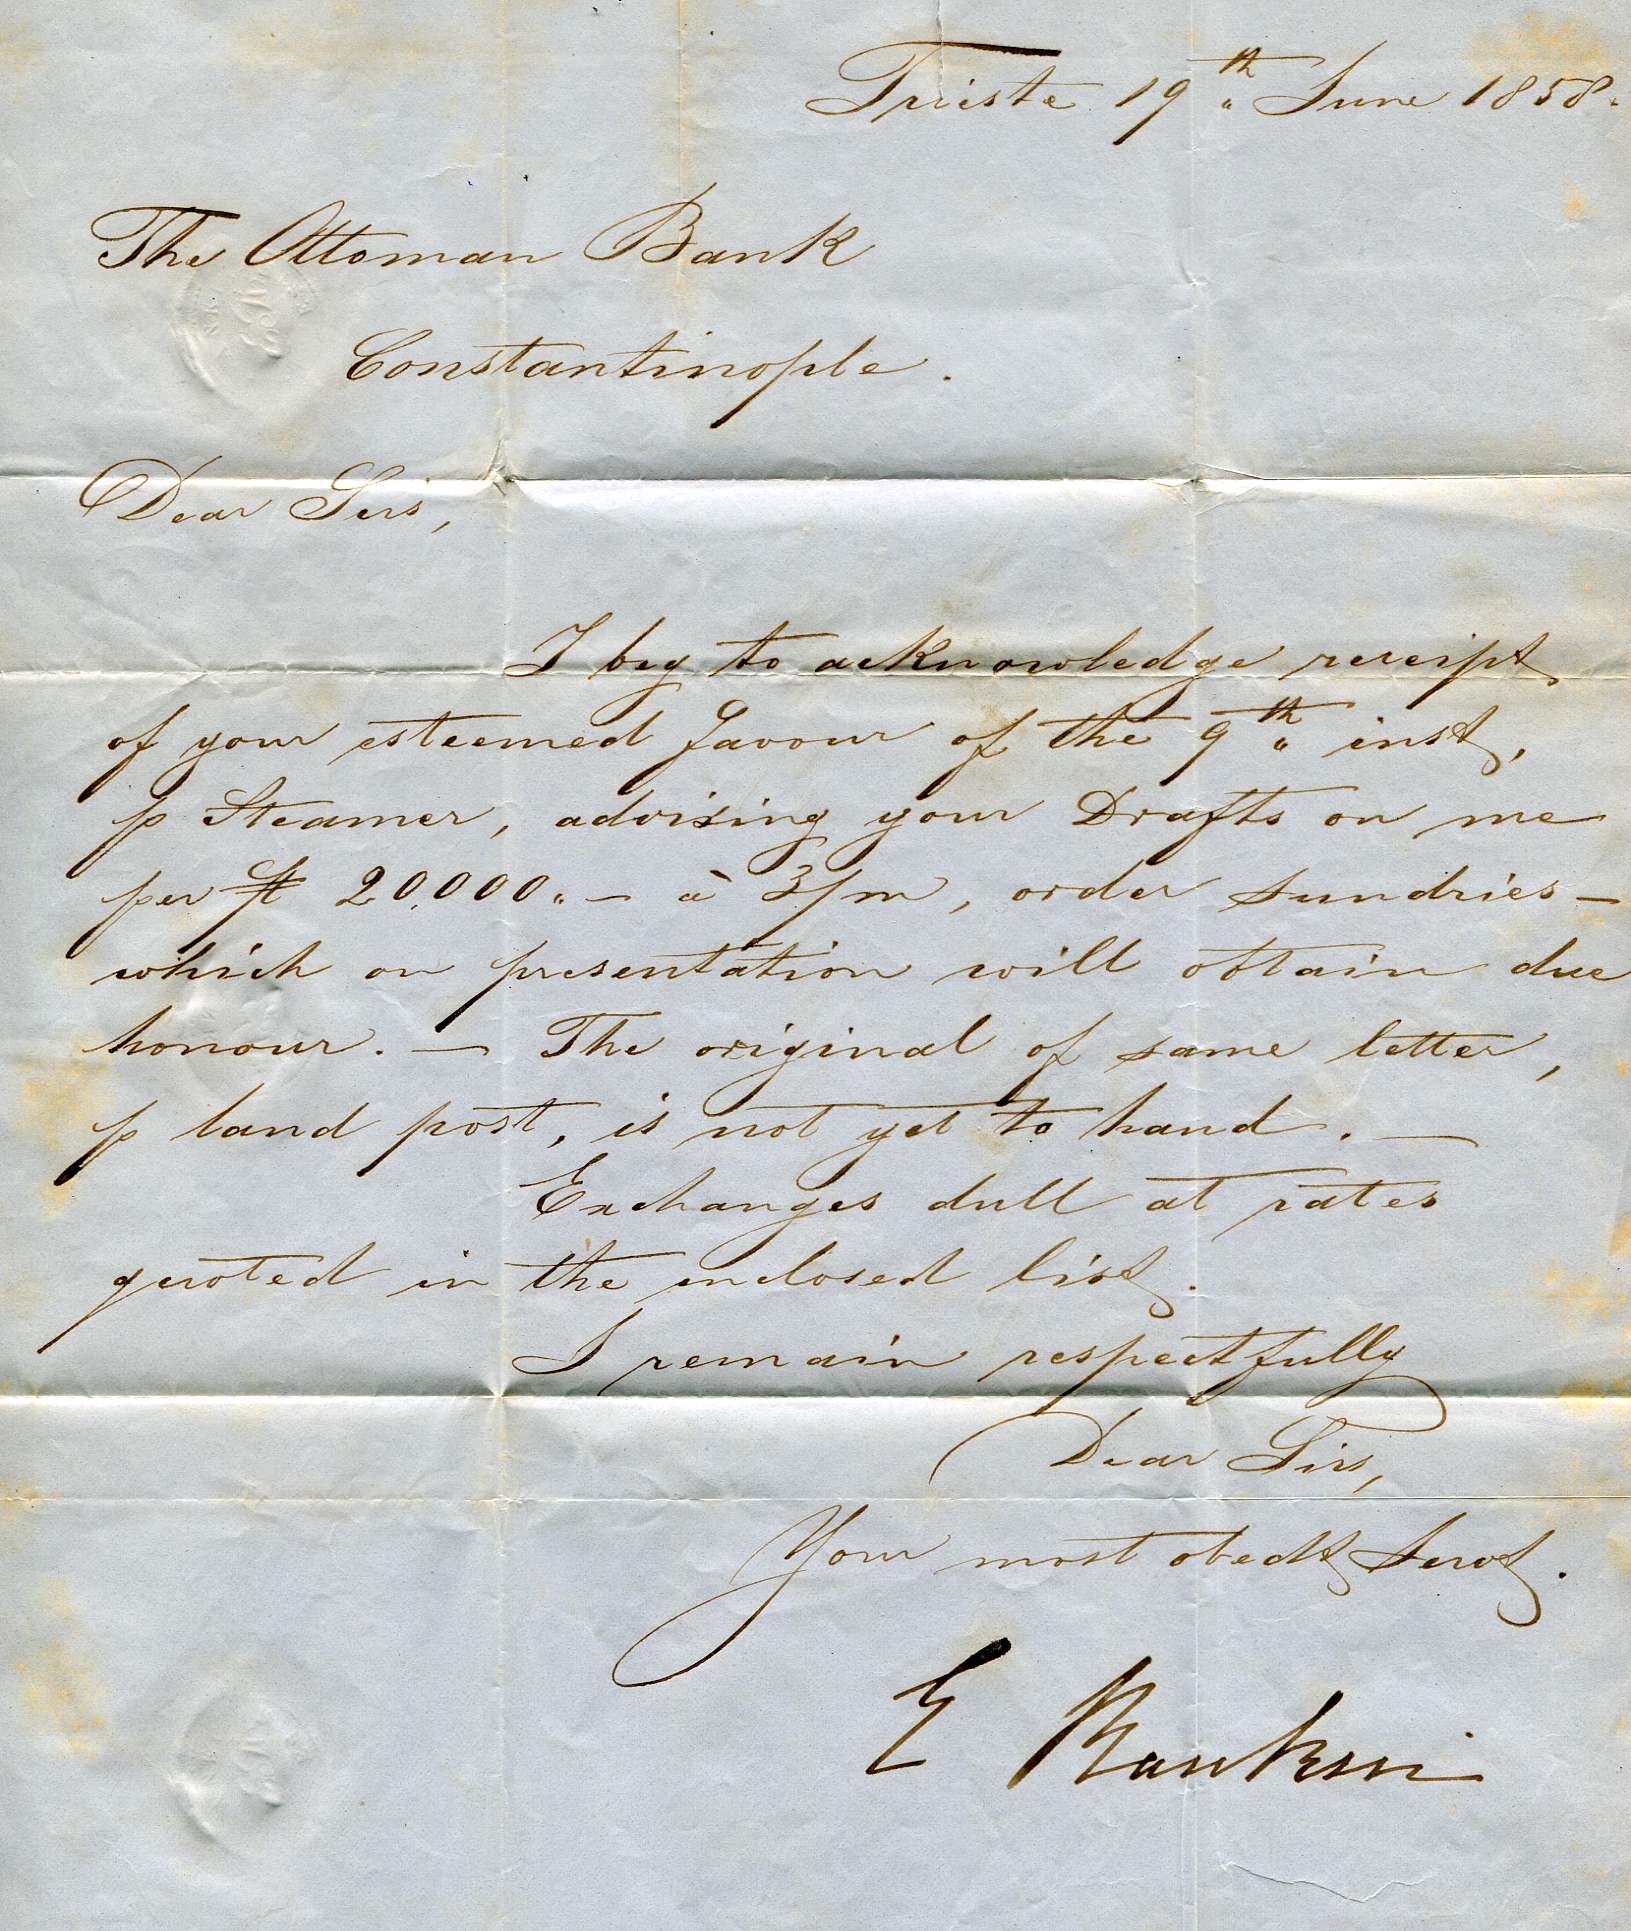 Trieste 19th June 1858.
The Ottoman Bank
Constantinople.
Dear Sirs,
I beg to acknowledge receipt
of your esteemed favour of the 9th inst,
p Steamer, advising your Drafts on me
per ft 20,000.- à 3/m, order Sundries -
which on presentation will obtain due
honour. - The original of same letter,
p land post, is not yet to hand. -
Exchanges dull at rates
quoted in the enclosed list.
I remain respectfully
Dear Sirs,
Your most obedt Servt.
E